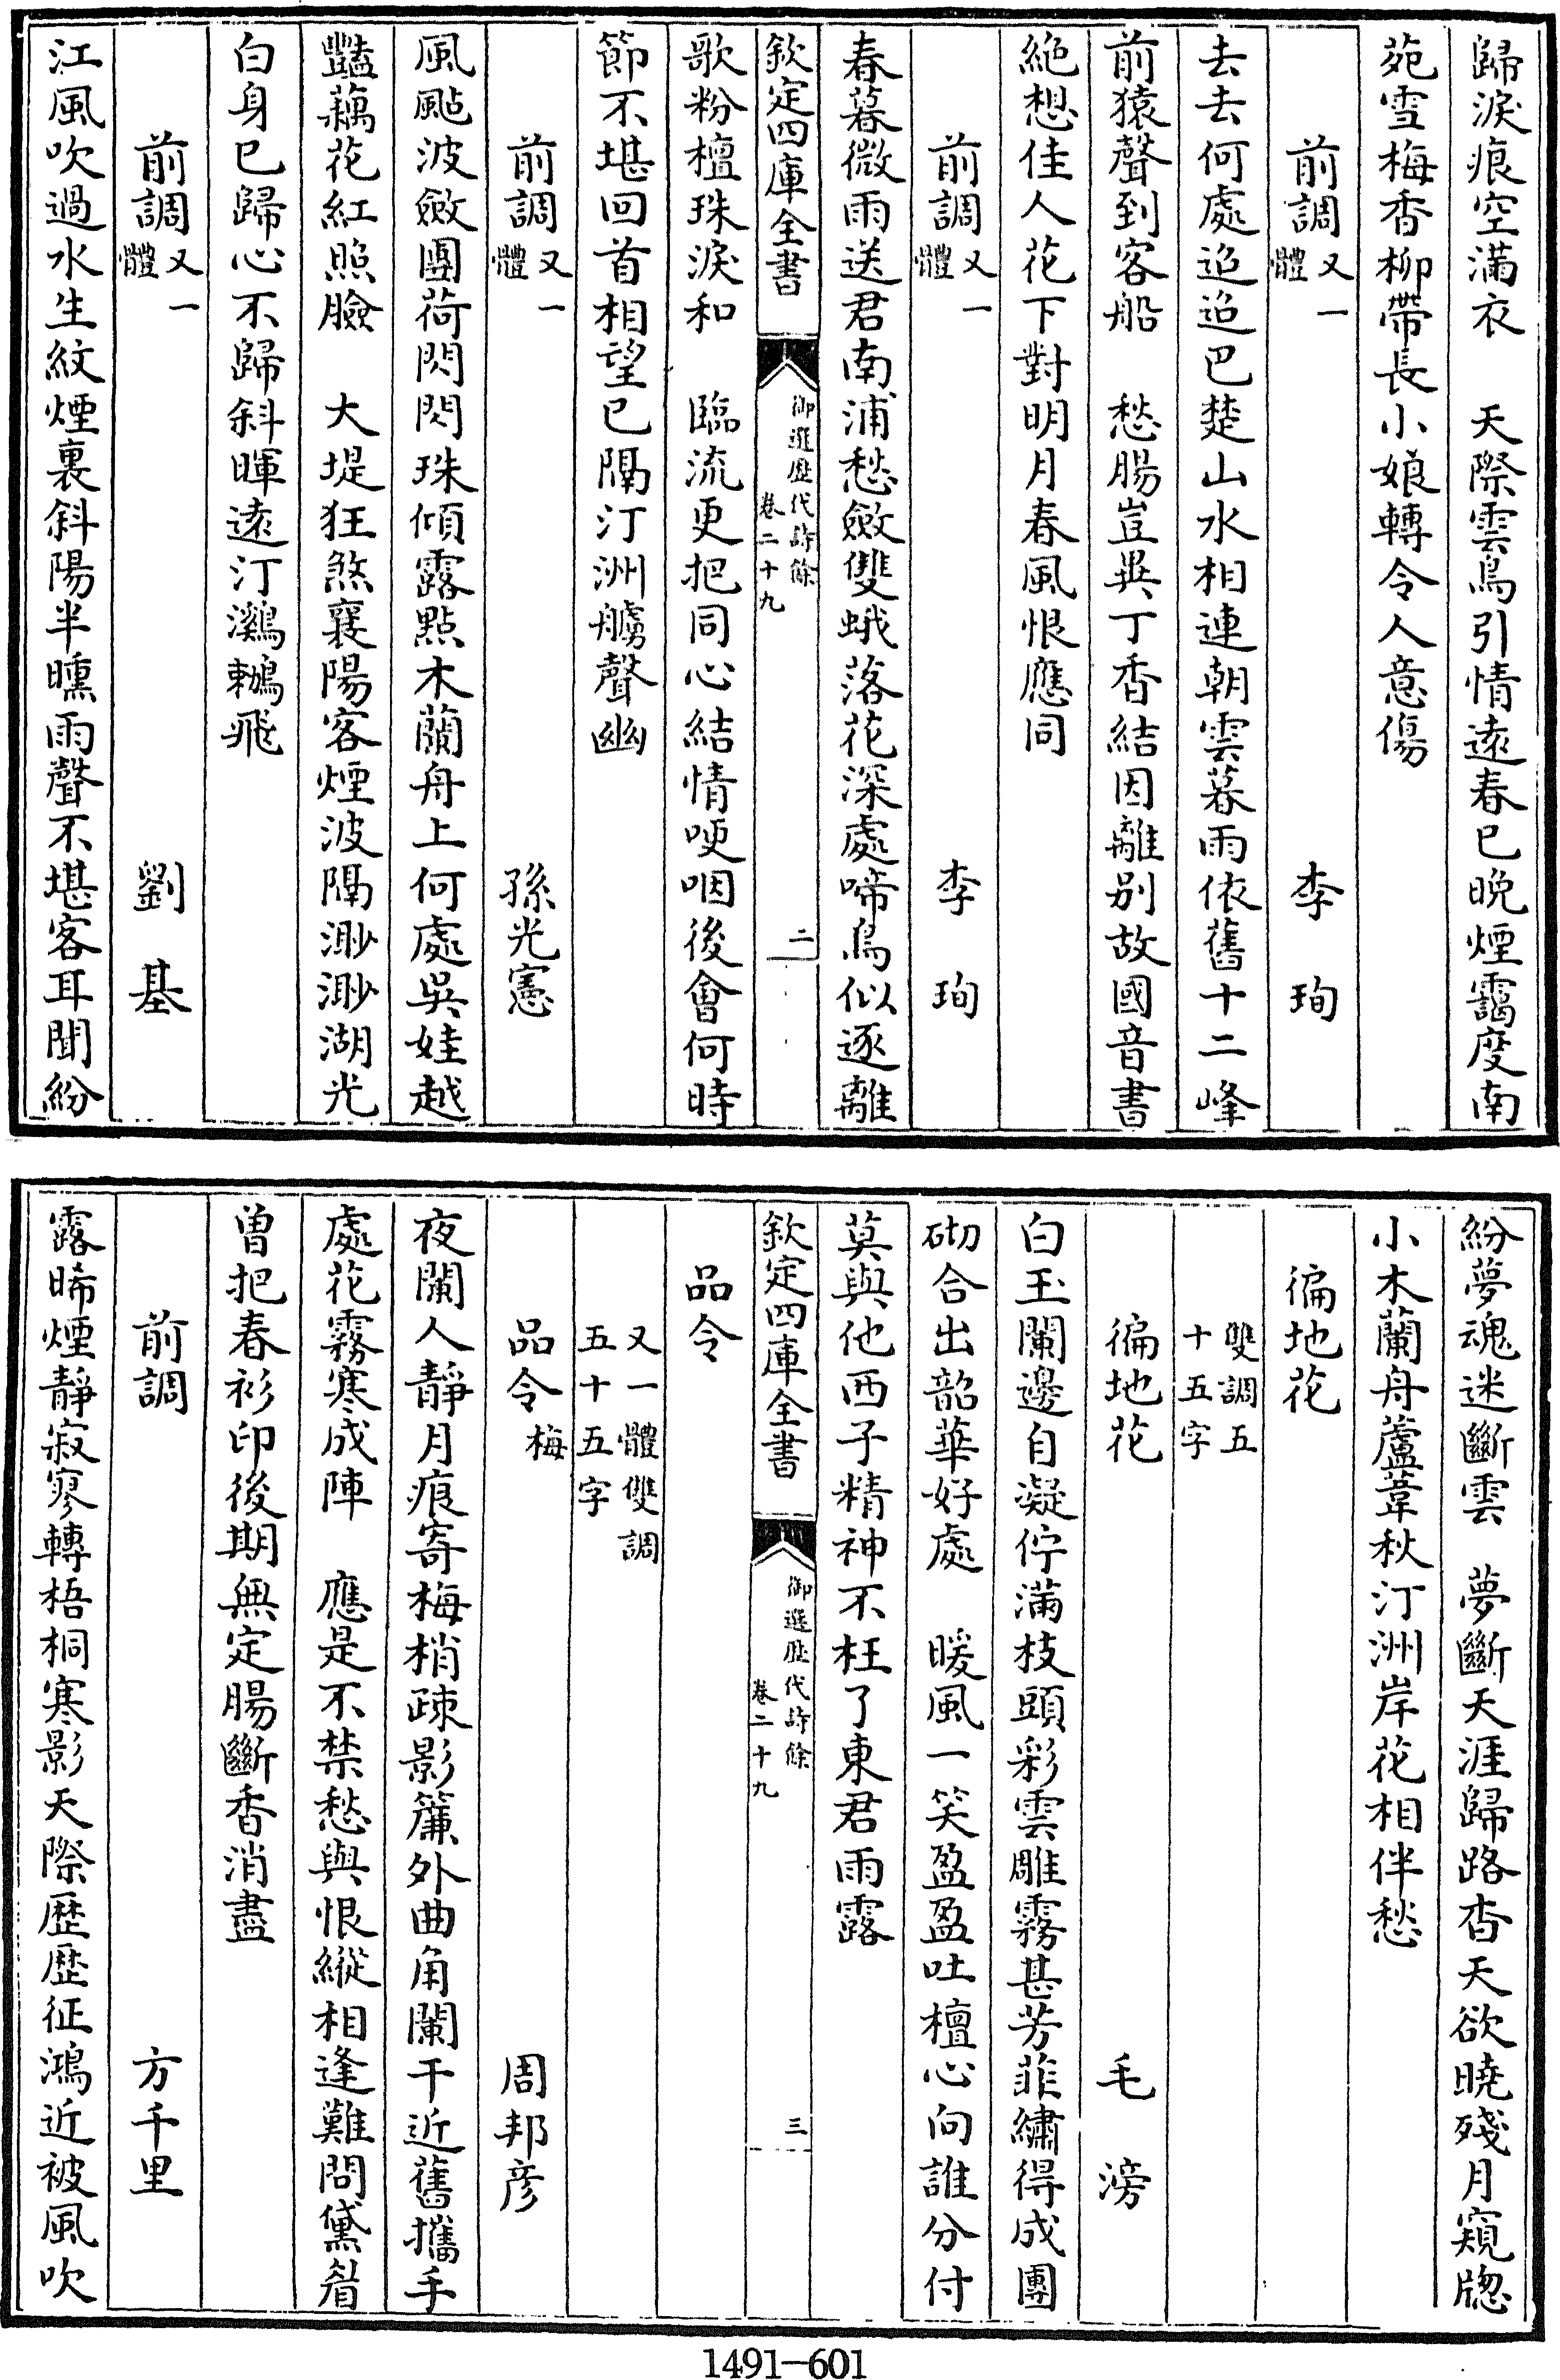 歸淚痕空滿衣　天際雲鳥引情遠春已晚煙靄度南
苑雪梅香柳帶長小娘轉令人意傷
前調又一體　李珣
去去何處迢迢巴楚山水相連朝雲暮雨依舊十二峰
前猿聲到客船　愁腸豈異丁香結因離別故國音書
絶想佳人花下對明月春風恨應同
前調又一體　李珣
春暮微雨送君南浦愁斂雙蛾落花深處啼鳥似逐離
欽定四庫全書　御選歷代詩餘卷二十九　二
歌粉檀珠淚和　臨流更把同心結情哽咽後會何時
節不堪回首相望已隔汀洲艣聲幽
前調又一體　孫光憲
風颭波斂團荷閃閃珠傾露點木蘭舟上何處吳娃越
豔藕花紅照臉　大堤狂煞襄陽客煙波隔渺渺湖光
白身已歸心不歸斜暉遠汀鸂鶒飛
前調又一體　劉基
江風吹過水生紋煙裏斜陽半曛雨聲不堪客耳聞紛
紛夢魂迷斷雲　夢斷天涯歸路杳天欲曉殘月窺牕
小木蘭舟蘆葦秋汀洲岸花相伴愁
徧地花
雙調五十五字
徧地花　毛滂
白玉闌邊自凝佇滿枝頭彩雲雕霧甚芳菲繡得成團
砌合出韶華好處　暖風一笑盈盈吐檀心向誰分付
莫與他西子精神不枉了東君雨露
欽定四庫全書　御選歷代詩餘卷二十九　三
品令
又一體雙調五十五字
品令梅　周邦彦
夜闌人靜月痕寄梅梢疎影簾外曲角闌干近舊攜手
處花霧寒成陣　應是不禁愁與恨縱相逢難問黛眉
曽把春衫印後期無定腸斷香消盡
前調　方千里
露晞煙靜寂寥轉梧桐寒影天際歷歷征鴻近被風吹
1491—601